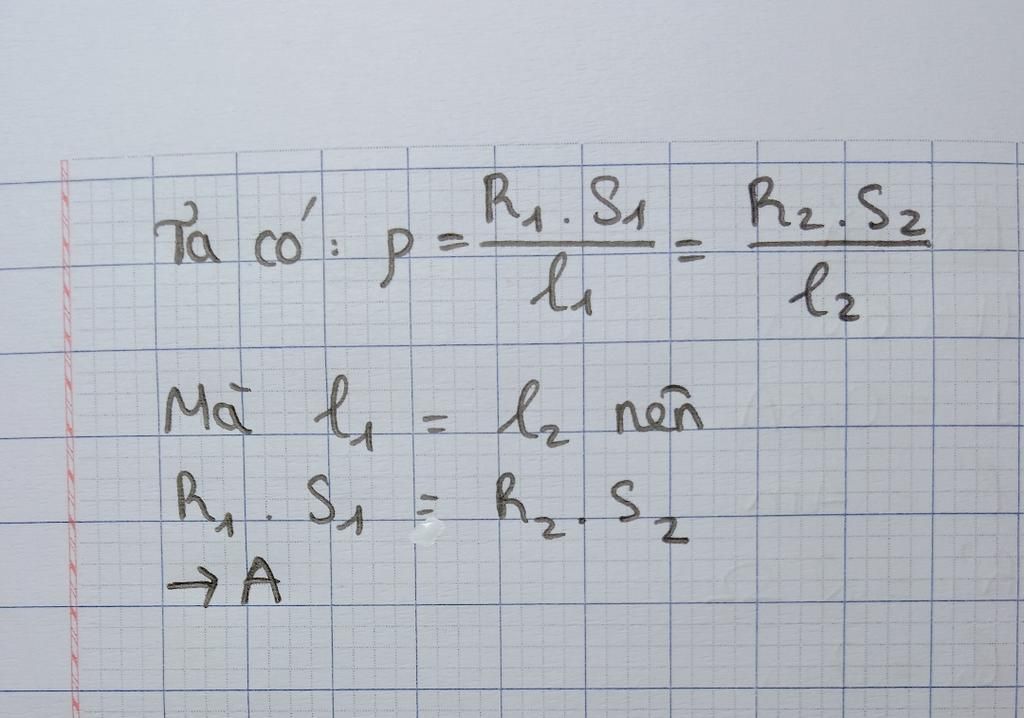 Ta có: ρ = R₁.S₁/l₁ = R₂.S₂/l₂
Mà l₁ = l₂ nên
R₁.S₁ = R₂.S₂
→ A